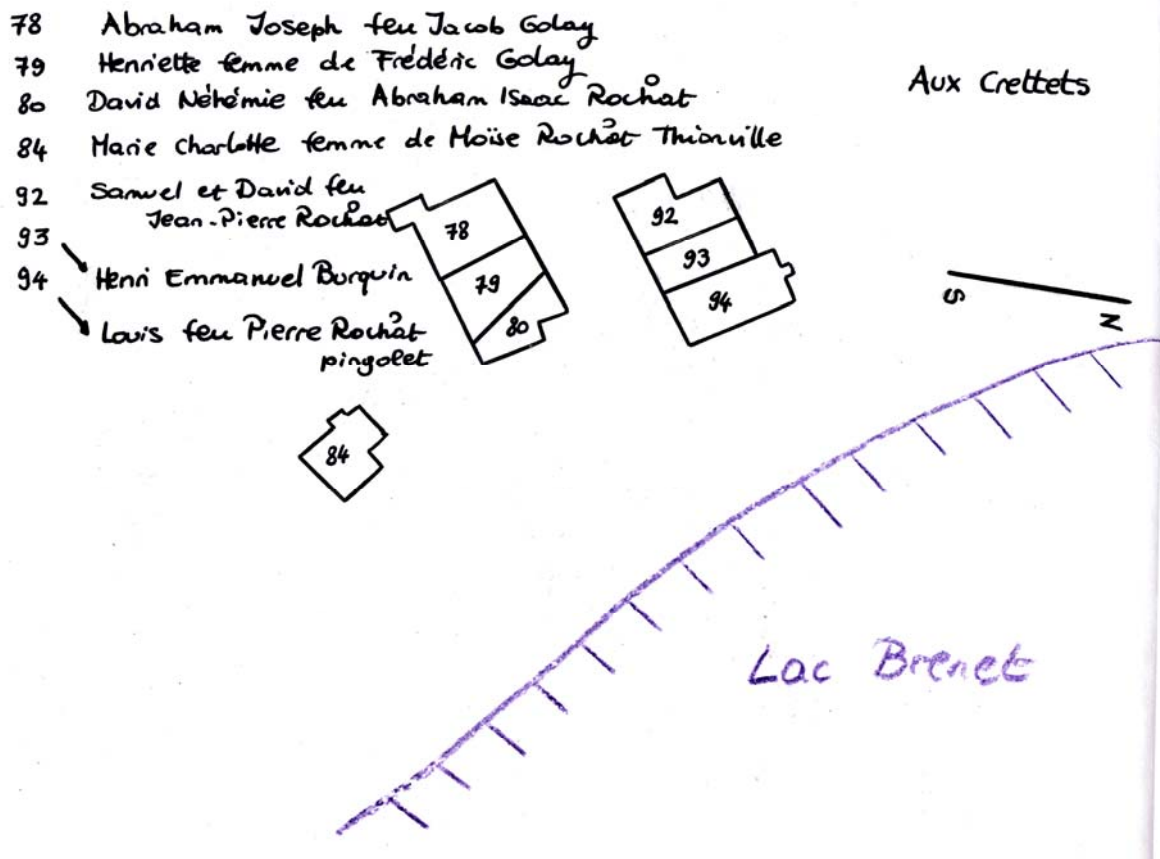 78 Abraham Joseph feu Jacob Golay
79 Henriette femme de Frédéric Golay
80 David Néhémie feu Abraham Isaac Rochat
84 Marie Charlotte femme de Moïse Rochat Thionville
92 Samuel et David feu
Jean-Pierre Rochat
93 Henri Emmanuel Burquin
94 Louis feu Pierre Rochat
pingolet
Aux Crettets
78
79
80
92
93
94
84
S
N
Lac Brenet